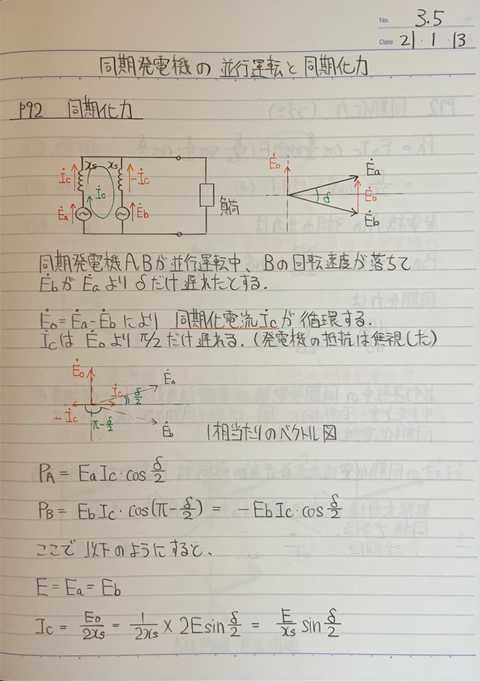 No. 3.5
Date 21・1・13
同期発電機の並行運転と同期化力
P92 同期化力
xs xs
İc İc -İc
Ėa Ėb 負荷
Ėo Ėa
δ Ėo
Ėb
同期発電機A,Bが並行運転中、Bの回転速度が落ちて
ĖbがĖaよりδだけ遅れたとする.
Ėo=Ėa-Ėbにより 同期化電流İcが循環する.
İcはĖoよりπ/2だけ遅れる.(発電機の抵抗は無視した)
Ėo
İc Ėa
δ/2
-İc
π-δ/2 Ėb
1相当たりのベクトル図
PA = EaIc・cos δ/2
PB = EbIc・cos(π-δ/2) = -EbIc・cos δ/2
ここで以下のようにすると、
E = Ea = Eb
Ic = Eo/2xs = 1/2xs × 2E sin δ/2 = E/xs sin δ/2